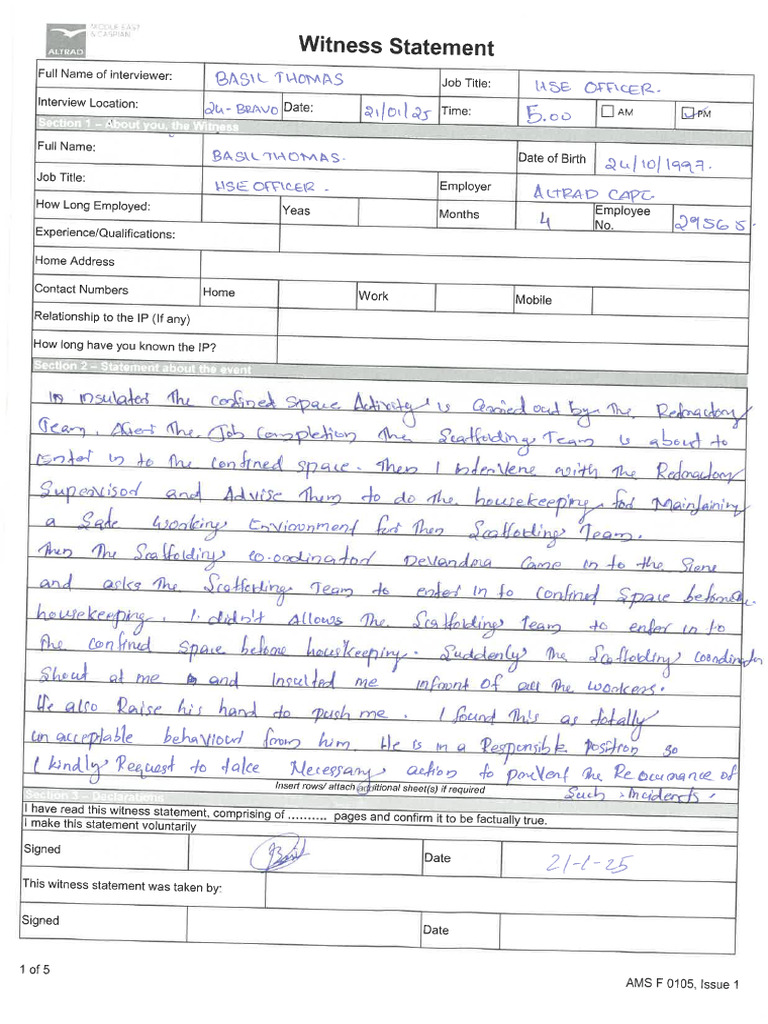 MIDDLE EAST
& CASPIAN
ALTRAD
Witness Statement
Full Name of interviewer: BASIL THOMAS Job Title: HSE OFFICER.
Interview Location: 24-BRAVO Date: 21/01/25 Time: 5.00 AM PM
Section 1 – About you, the Witness
Full Name: BASIL THOMAS. Date of Birth 24/10/1997.
Job Title: HSE OFFICER. Employer ALTRAD CAPE
How Long Employed: Yeas Months 4 Employee No. 29565.
Experience/Qualifications:
Home Address
Contact Numbers Home Work Mobile
Relationship to the IP (If any)
How long have you known the IP?
Section 2 – Statement about the event
In insulated The confined space Activity is Carried out by The Refractory
Team. After The Job Completion The Scaffolding Team is about to
Enter in to The confined space. Then I Intervene with The Refractory
Supervisor and Advise Them to do The housekeeping for Maintaining
a Safe Working Environment for Then Scaffolding Team.
Then The Scaffolding co-ordinator Devandra Came in to the
and asks The Scaffolding Team to enter in to confined space before
housekeeping. I didn't Allows The Scaffolding Team to enter in to
The confined space before housekeeping. Suddenly The Scaffolding coordinator
Shout at me and Insulted me infront of all The workers.
He also Raise his hand to push me. I found This as totally
un acceptable behaviour from him. He is in a Responsible position so
I kindly Request to take Necessary action to prevent The Reoccurance of
Insert rows/ attach additional sheet(s) if required Such Incidents.
Section 3 – Declarations
I have read this witness statement, comprising of .......... pages and confirm it to be factually true.
I make this statement voluntarily
Signed Date 21-1-25
This witness statement was taken by:
Signed Date
1 of 5
AMS F 0105, Issue 1